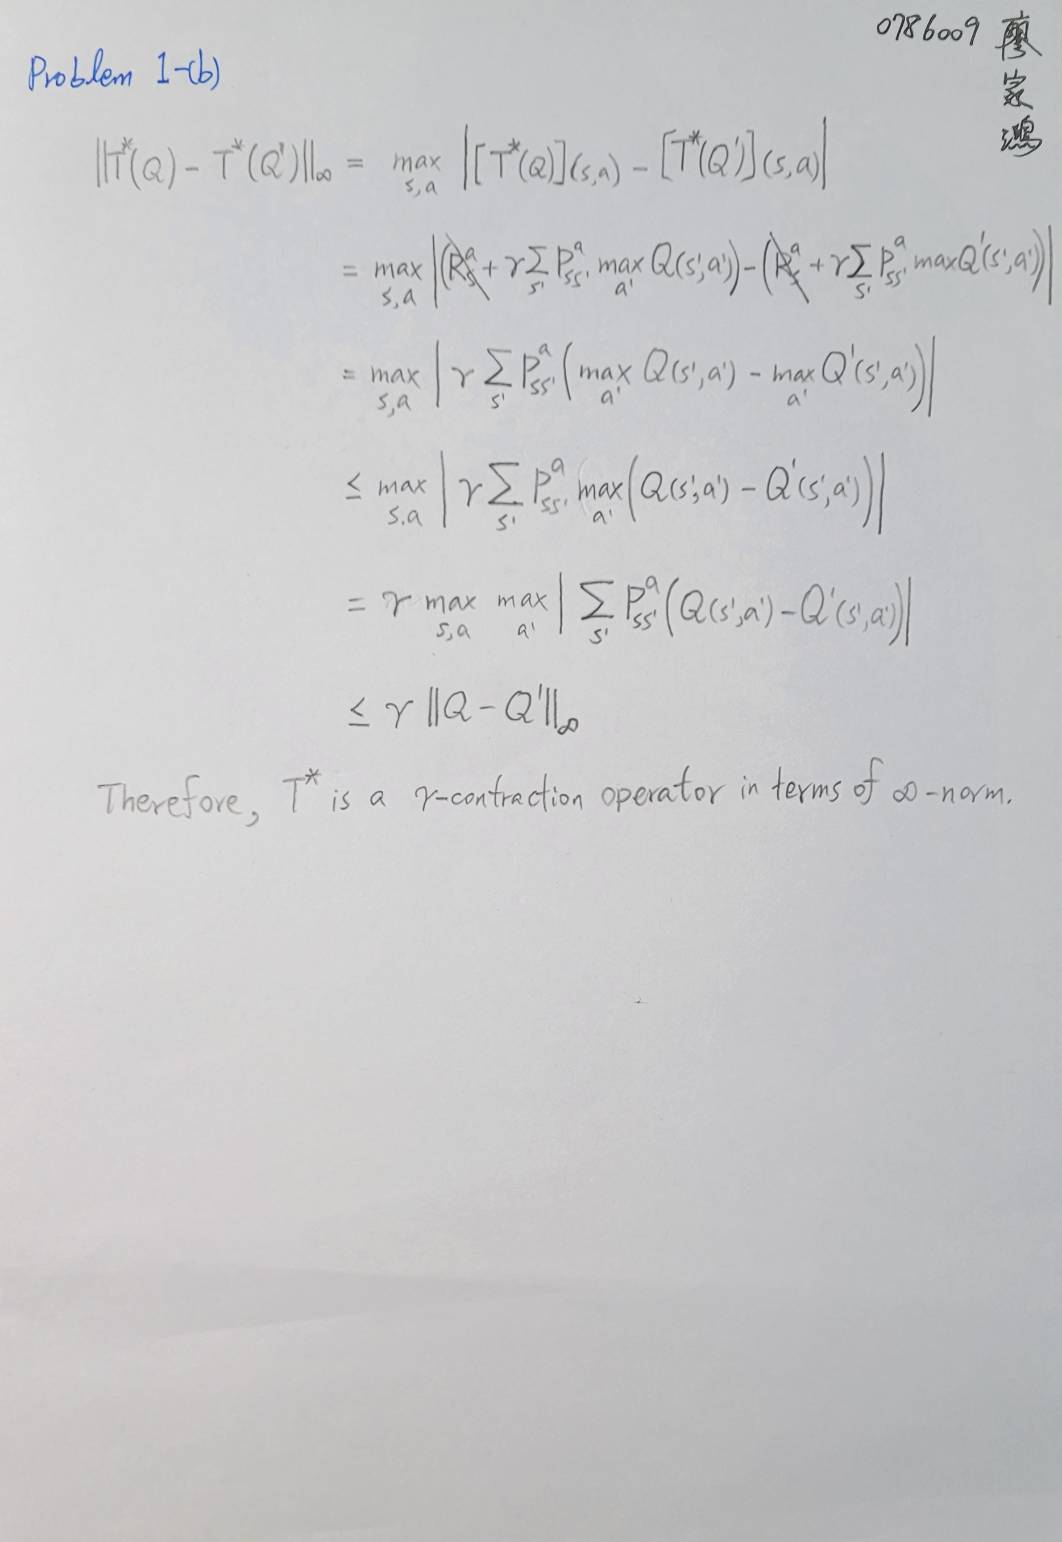 0786009 廖家鴻
Problem 1-(b)
‖T*(Q) - T*(Q')‖∞ = max_{s,a} |[T*(Q)](s,a) - [T*(Q')](s,a)|
= max_{s,a} |(R_s^a + γ∑_{s'} P_{ss'}^a max_{a'} Q(s',a')) - (R_s^a + γ∑_{s'} P_{ss'}^a max Q'(s',a'))|
= max_{s,a} |γ∑_{s'} P_{ss'}^a (max_{a'} Q(s',a') - max_{a'} Q'(s',a'))|
≤ max_{s,a} |γ∑_{s'} P_{ss'}^a max_{a'} (Q(s',a') - Q'(s',a'))|
= γ max_{s,a} max_{a'} |∑_{s'} P_{ss'}^a (Q(s',a') - Q'(s',a'))|
≤ γ ‖Q - Q'‖∞
Therefore, T* is a γ-contraction operator in terms of ∞-norm.